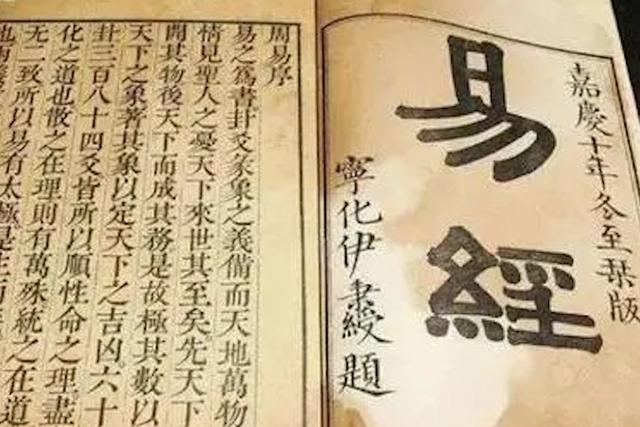 嘉慶十年冬至栞版
易經
寧化伊秉綬題
周易序
易之爲書卦爻彖象之義備而天地萬物
情見聖人之憂天下來世其至矣先天下
開其物後天下而成其務是故極其數以
天下之象著其象以定天下之吉凶六十
卦三百八十四爻皆所以順性命之理盡
化之道也散之在理則有萬殊統之在道
无二致所以易有太極是生兩